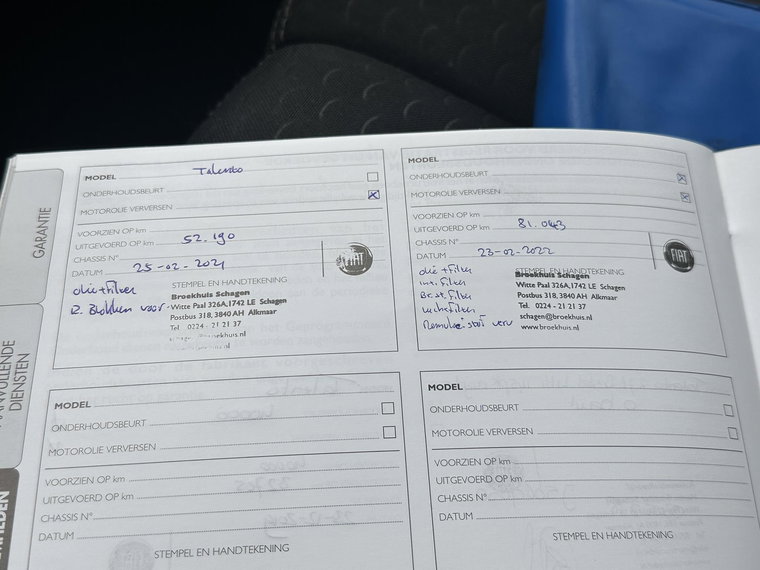 GARANTIE
AANVULLENDE
DIENSTEN
MODEL Talento
ONDERHOUDSBEURT
MOTOROLIE VERVERSEN
VOORZIEN OP km
UITGEVOERD OP km 52.190
CHASSIS N°
DATUM 25-02-2021
STEMPEL EN HANDTEKENING
olie+filter
R. Blokken voor
Broekhuis Schagen
Witte Paal 326A,1742 LE Schagen
Postbus 318, 3840 AH Alkmaar
Tel. 0224 - 21 21 37
MODEL
ONDERHOUDSBEURT
MOTOROLIE VERVERSEN
VOORZIEN OP km
UITGEVOERD OP km 81.043
CHASSIS N°
DATUM 23-02-2022
FIAT
STEMPEL EN HANDTEKENING
olie+filter
int. filter
Brst. filter
luchtfilter
Remvloeistof verv
Broekhuis Schagen
Witte Paal 326A,1742 LE Schagen
Postbus 318, 3840 AH Alkmaar
Tel. 0224 - 21 21 37
schagen@broekhuis.nl
www.broekhuis.nl
MODEL
ONDERHOUDSBEURT
MOTOROLIE VERVERSEN
VOORZIEN OP km
UITGEVOERD OP km
CHASSIS N°
DATUM
STEMPEL EN HANDTEKENING
MODEL
ONDERHOUDSBEURT
MOTOROLIE VERVERSEN
VOORZIEN OP km
UITGEVOERD OP km
CHASSIS N°
DATUM
STEMPEL EN HANDTEKENING